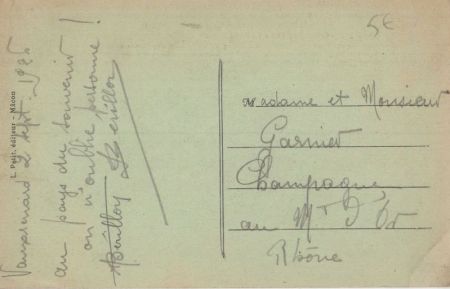 L. Petit, éditeur - Mâcon
2 Sept. 1925
au pays du souvenir
on n'oublie personne !
5€
Madame et Monsieur
Garnier
Champagne
au Mt d'Or
Rhône